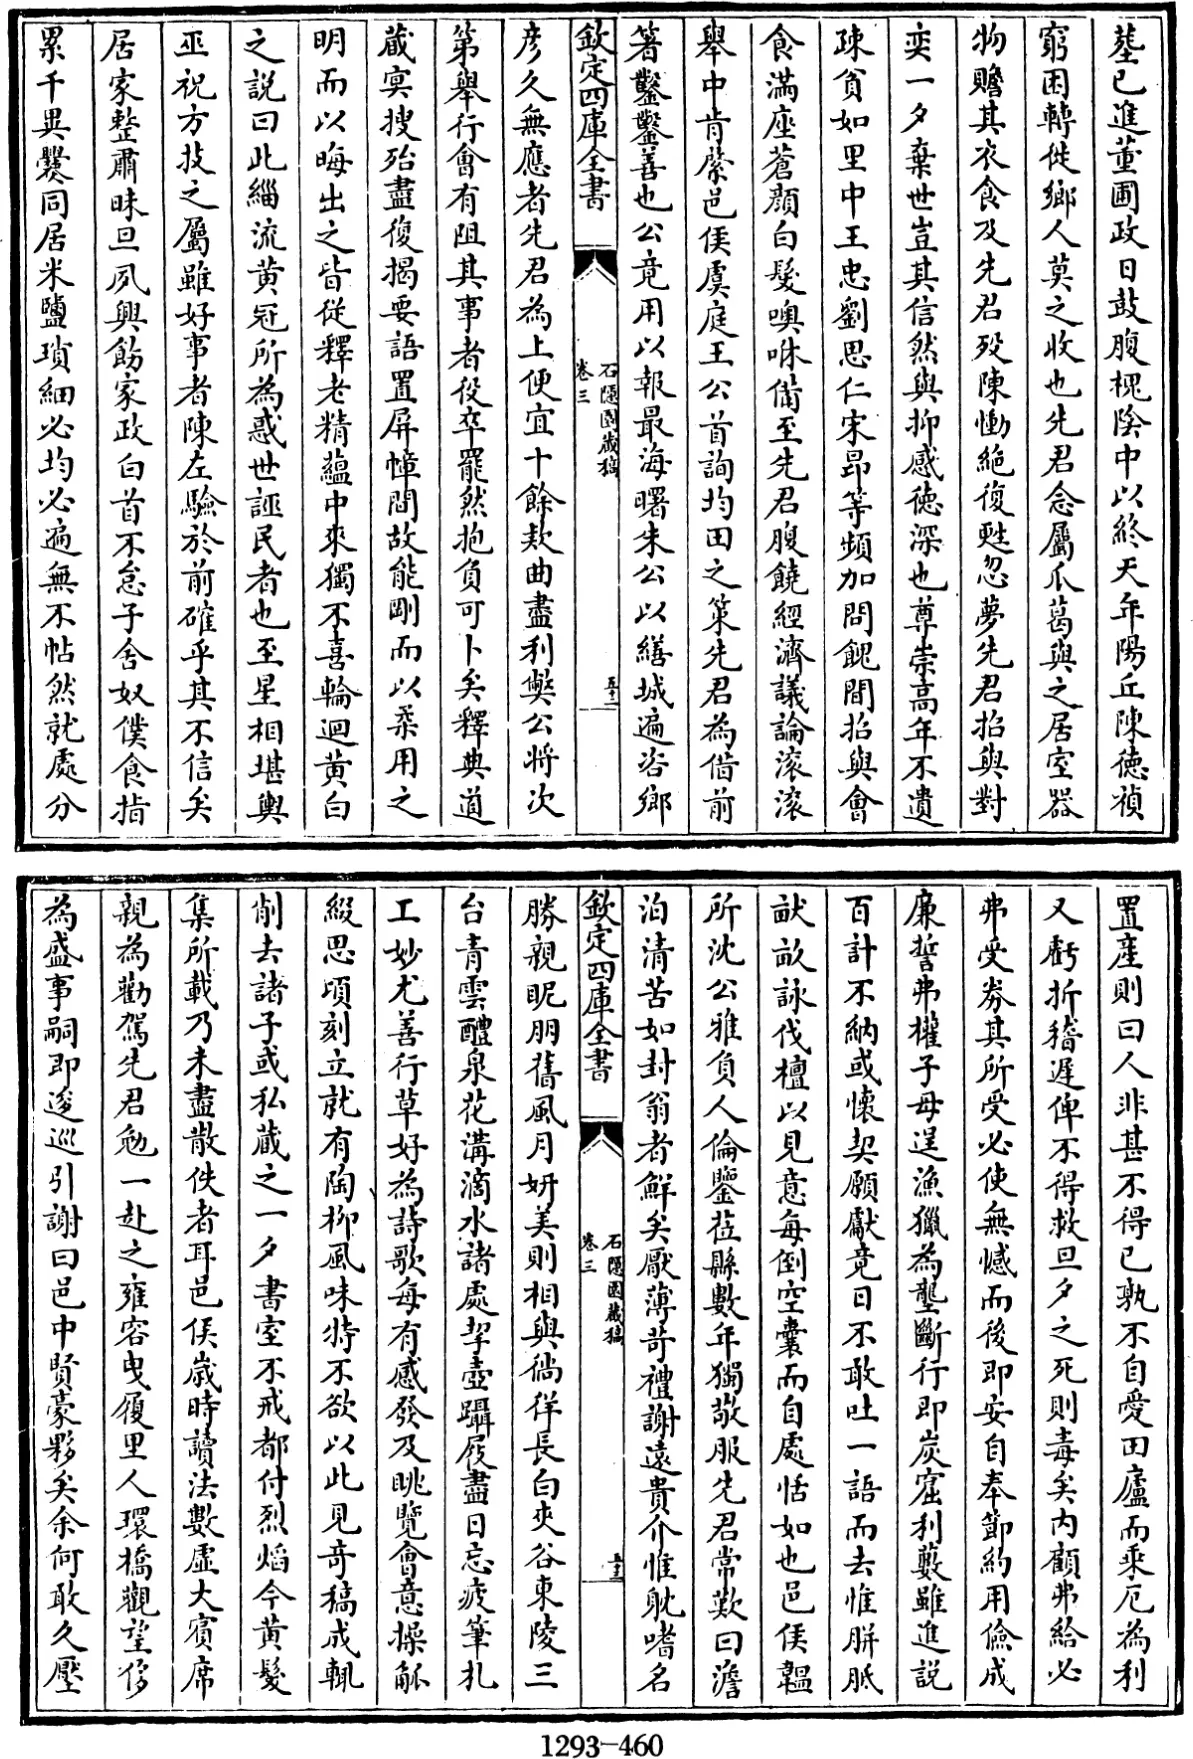 塟已進董圃政日鼓腹槐陰中以終天年陽丘陳德禎
窮困轉徙鄉人莫之收也先君念屬瓜葛與之居室器
物贍其衣食及先君歿陳慟絶復甦忽夢先君招與對
奕一夕棄世豈其信然與抑感徳深也尊崇高年不遺
疎貧如里中王忠劉思仁宋昂等頻加問餽間招與會
食滿座蒼顔白髮噢咻備至先君腹饒經濟議論滾滾
舉中肯綮邑侯虞庭王公首詢均田之策先君為借前
箸鑿鑿善也公竟用以報最海曙朱公以繕城遍咨鄉
欽定四庫全書
石隱園藏稿
卷三
五十二
彦久無應者先君為上便宜十餘欵曲盡利獘公將次
第舉行會有阻其事者役卒罷然抱負可卜矣釋典道
蔵㝠搜殆盡復揭要語置屏幛間故能剛而以柔用之
明而以晦出之皆從釋老精蘊中來獨不喜輪迴黄白
之説曰此緇流黄冠所為惑世誣民者也至星相堪輿
巫祝方技之屬雖好事者陳左驗於前確乎其不信矣
居家整肅昧旦夙興飭家政白首不怠子舍奴僕食指
累千異爨同居米鹽瑣細必均必遍無不帖然就處分
置産則曰人非甚不得已孰不自愛田廬而乘厄為利
又虧折稽遲俾不得救旦夕之死則毒矣内顧弗給必
弗受劵其所受必使無憾而後即安自奉節約用儉成
廉誓弗權子母逞漁獵為壟斷行即炭窟利藪雖進説
百計不納或懷契願獻竟日不敢吐一語而去惟胼胝
畎畝詠伐檀以見意毎倒空囊而自處恬如也邑侯韞
所沈公雅負人倫鑒莅縣數年獨敬服先君常歎曰澹
泊清苦如封翁者鮮矣厭薄苛禮謝遠貴介惟耽嗜名
欽定四庫全書
石隱園藏稿
卷三
五十三
勝親昵朋舊風月妍美則相與徜徉長白夾谷東陵三
台青雲醴泉花溝滴水諸處挈壺躡屐盡日忘疲筆札
工妙尤善行草好為詩歌毎有感發及眺覽會意操觚
綴思頃刻立就有陶柳風味特不欲以此見竒稿成輒
削去諸子或私蔵之一夕書室不戒都付烈焰今黄髮
集所載乃未盡散佚者耳邑侯歳時讀法數虚大賓席
親為勸駕先君勉一赴之雍容曵履里人環橋觀望侈
為盛事嗣即逡巡引謝曰邑中賢豪夥矣余何敢久壓
1293-460